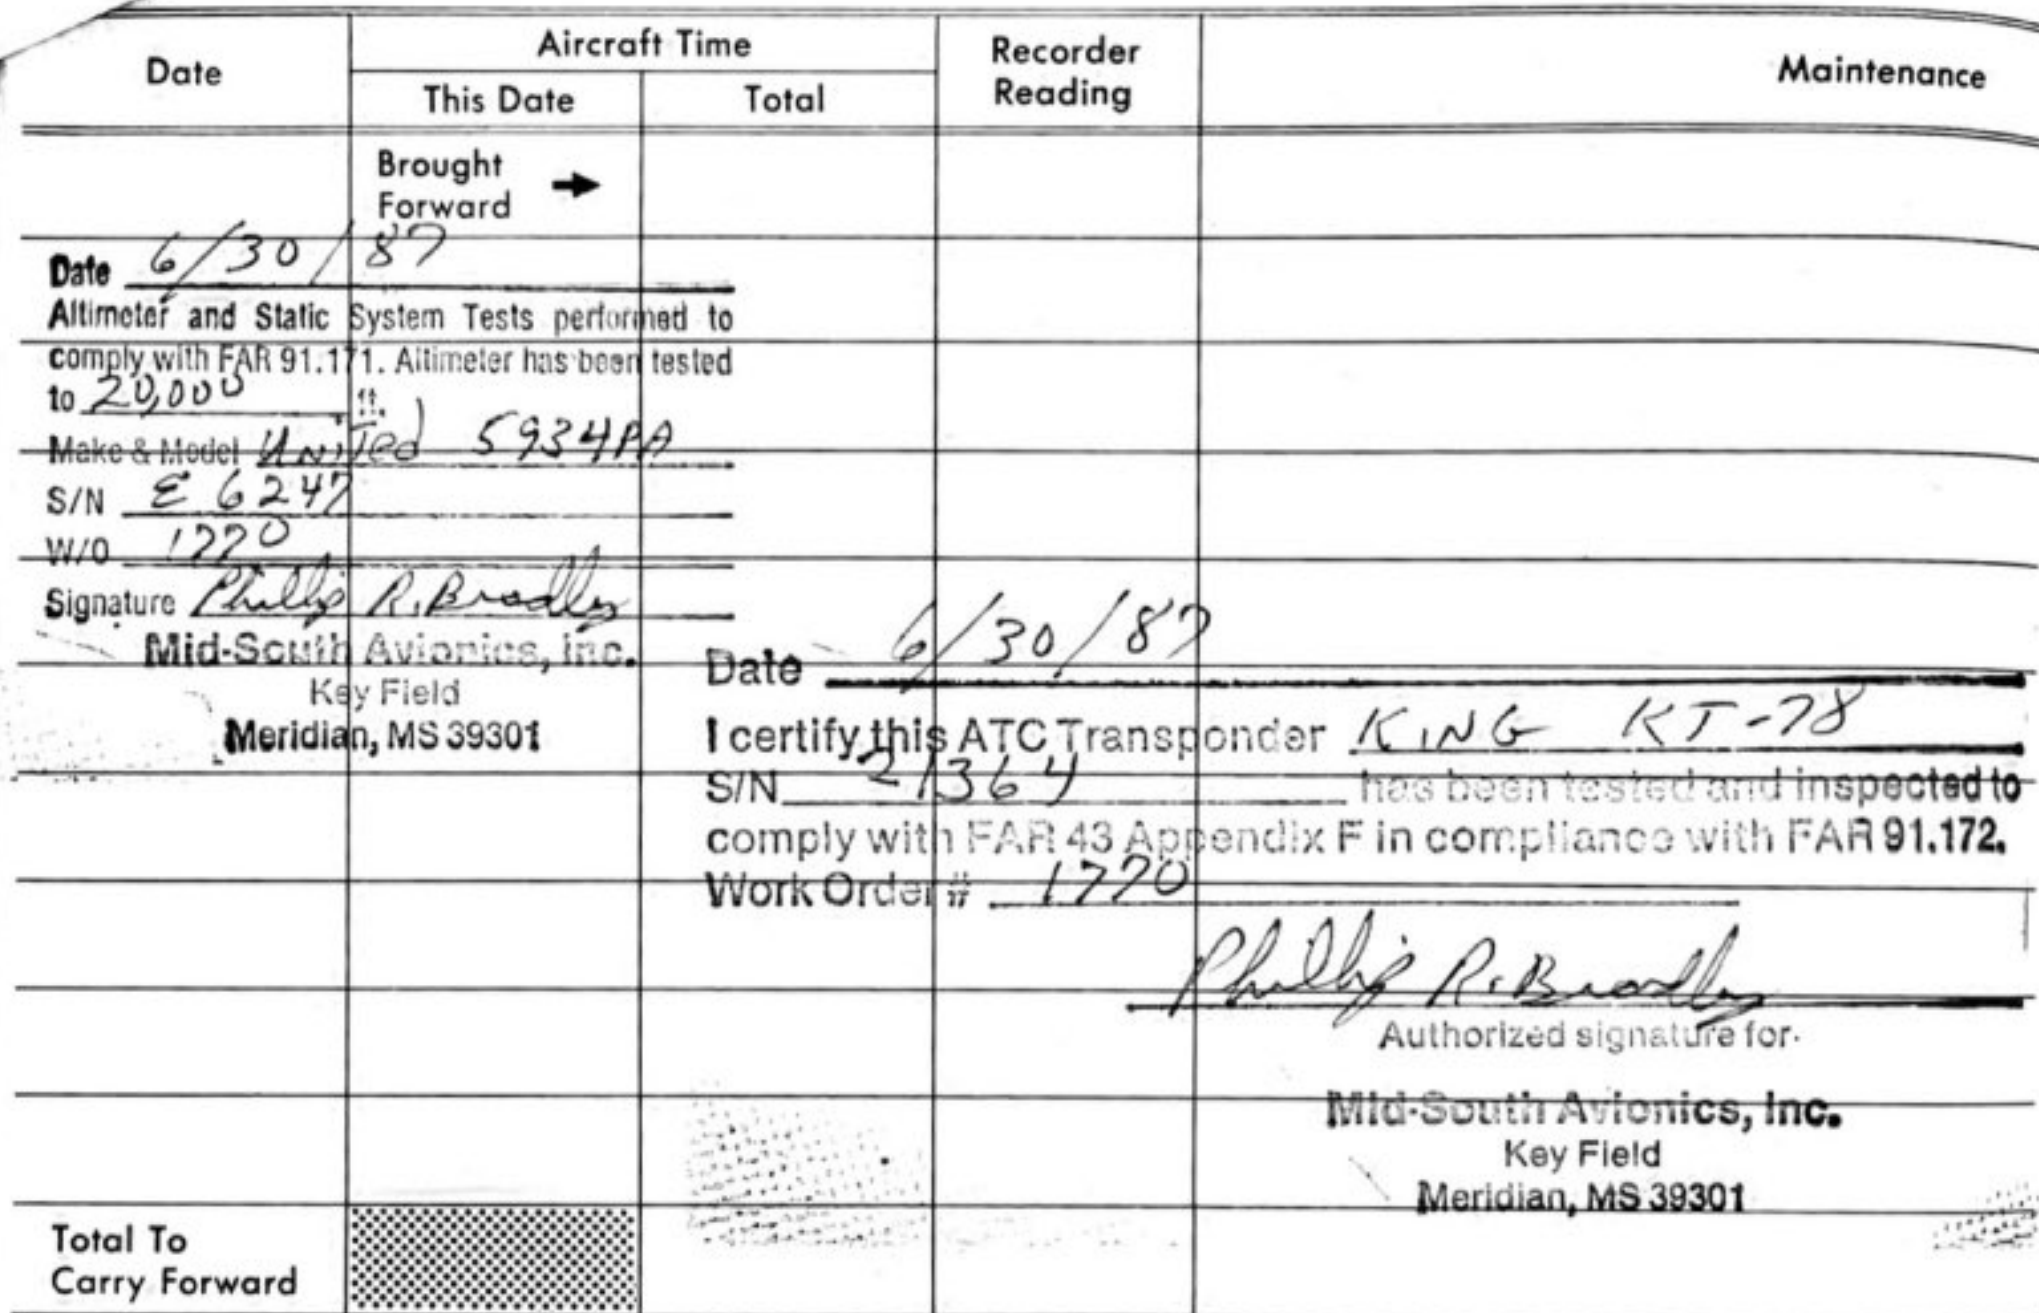 Date
Aircraft Time
This Date
Total
Recorder
Reading
Maintenance
Brought
Forward
Date 6/30/87
Altimeter and Static System Tests performed to
comply with FAR 91.171. Altimeter has been tested
to 20,000 ft.
Make & Model United 5934PA
S/N E 6247
W/O 1770
Signature Phillip R. Bradley
Mid-South Avionics, Inc.
Key Field
Meridian, MS 39301
Date 6/30/87
I certify this ATC Transponder KING KT-78
S/N 21364 has been tested and inspected to
comply with FAR 43 Appendix F in compliance with FAR 91.172.
Work Order # 1770
Phillip R. Bradley
Authorized signature for
Mid-South Avionics, Inc.
Key Field
Meridian, MS 39301
Total To
Carry Forward